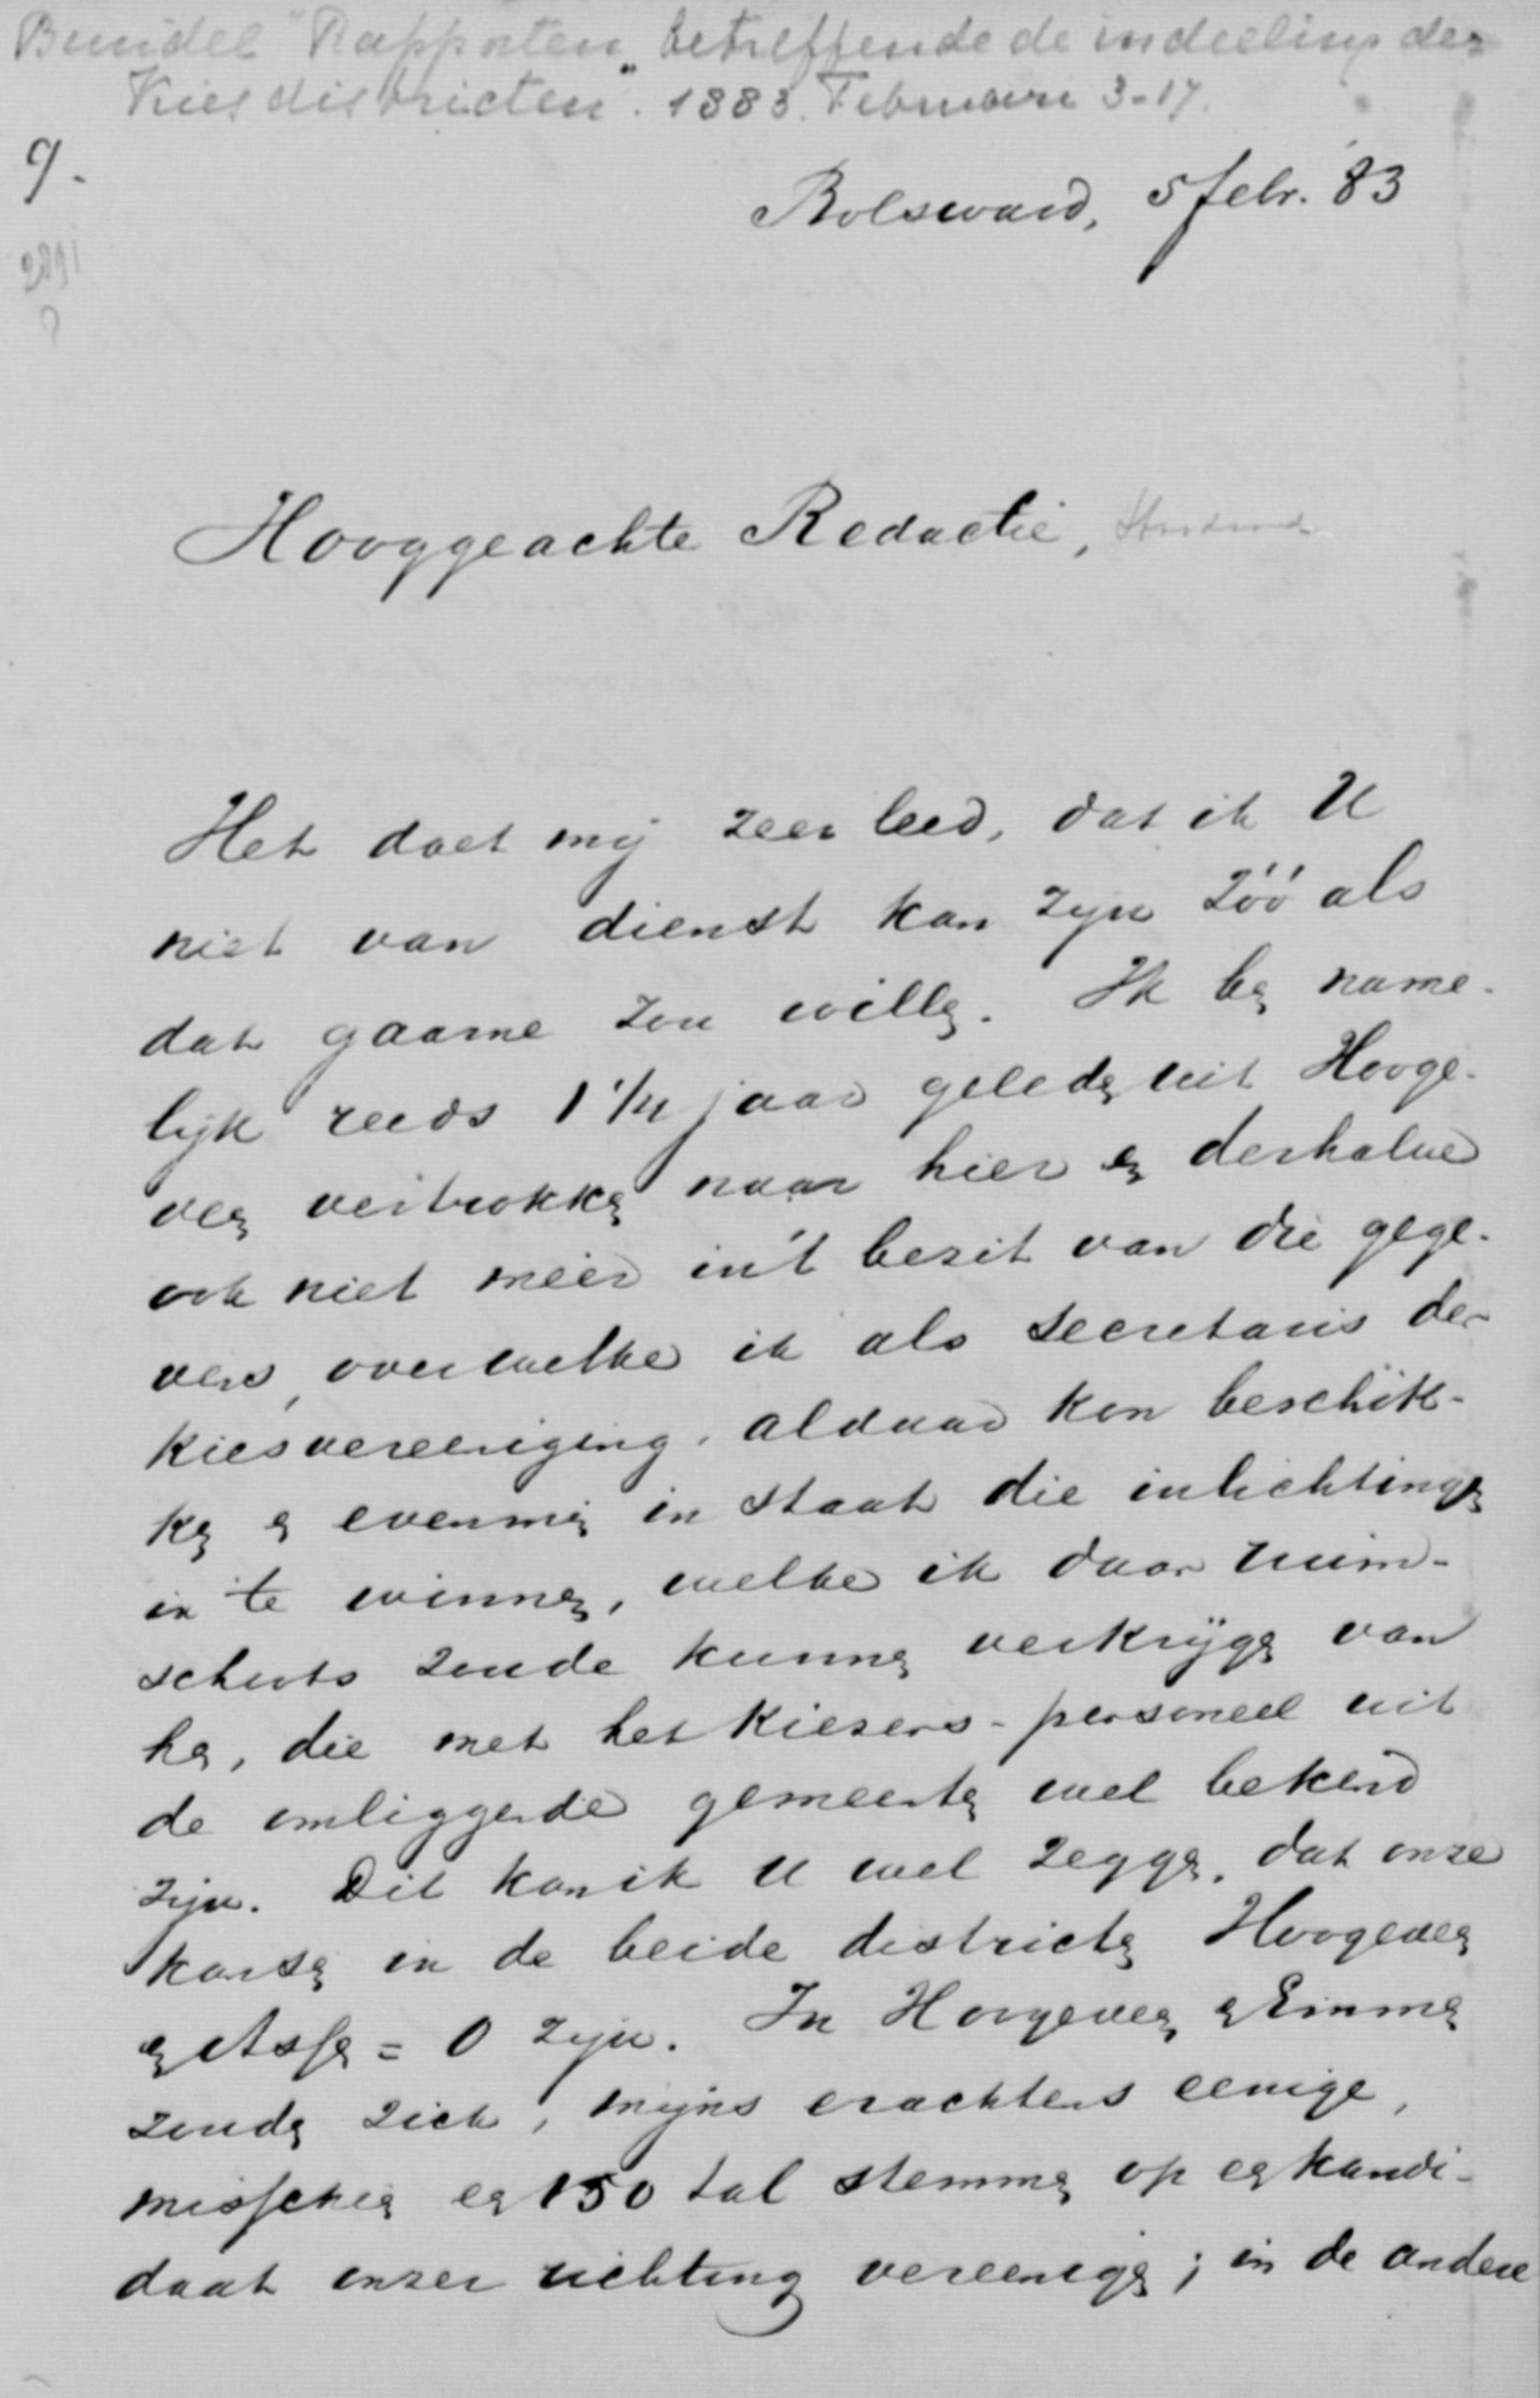 Bundel "Rapporten" betreffende de indeeling der
Kiesdistricten". 1883. Februari 3-17.
9.
Bolsward, 5 febr. '83
Hooggeachte Redactie,
Het doet mij zeer leed, dat ik U
niet van dienst kan zijn zóó als
dat gaarne zou willen. Ik ben name-
lijk reeds 1 1/2 jaar geleden uit Hooge-
veen vertrokken naar hier en derhalve
ook niet meer in 't bezit van die gege-
vens, over welke ik als secretaris der
kiesvereeniging, aldaar kon beschik-
ken en evenmin in staat die inlichtingen
in te winnen, welke ik daar ruim-
schoots zoude kunnen verkrijgen van
hen, die met het kiezers-personeel uit
de omliggende gemeenten wel bekend
zijn. Dit kan ik U wel zeggen, dat onze
kansen in de beide districten Hoogeveen
en Assen = 0 zijn. In Hoogeveen en Emmen
zouden zich, mijns erachtens eenige,
misschien een 150 tal stemmen op een kandi-
daat onzer richting vereenigen; in de andere